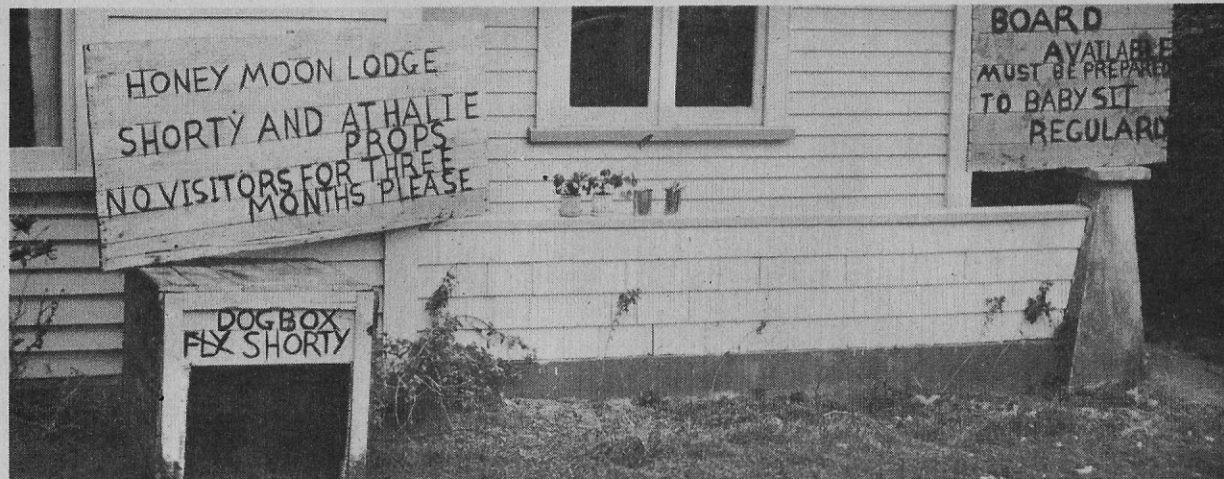 HONEY MOON LODGE
SHORTY AND ATHALIE
PROPS
NO VISITORS FOR THREE
MONTHS PLEASE
DOGBOX
FLX SHORTY
BOARD
AVAILABLE
MUST BE PREPARED
TO BABYSIT
REGULARLY